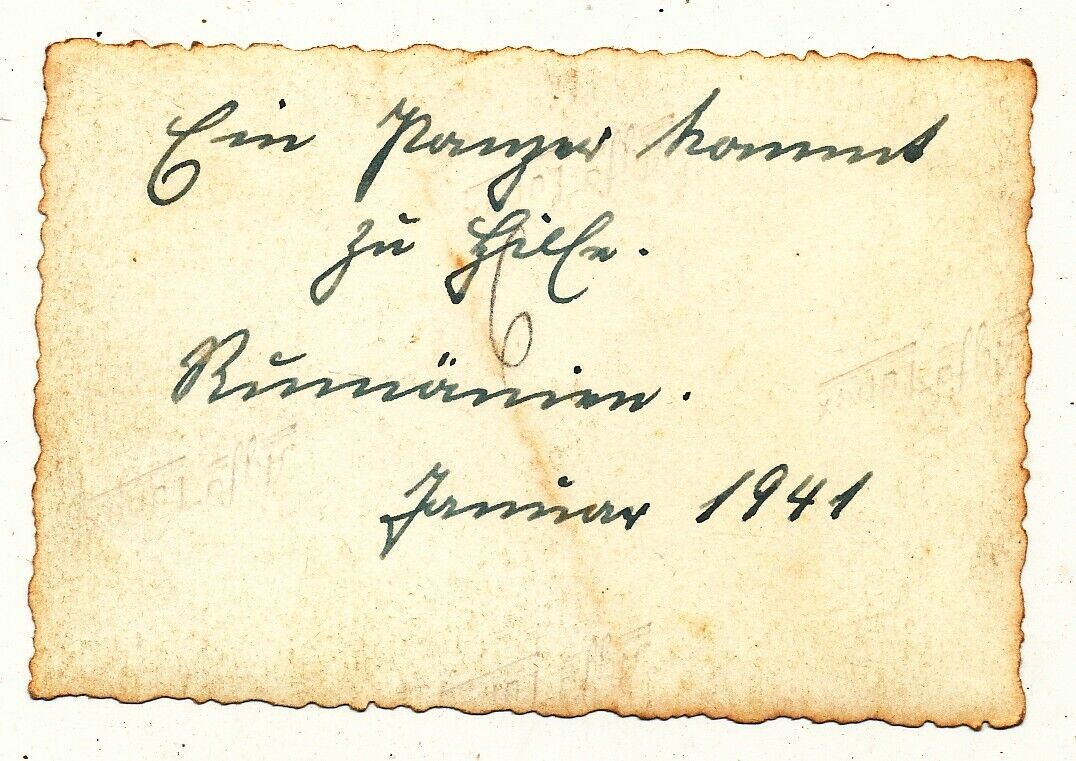 Ein Panzer kommt
zu Hilfe.
6
Rumänien.
Januar 1941